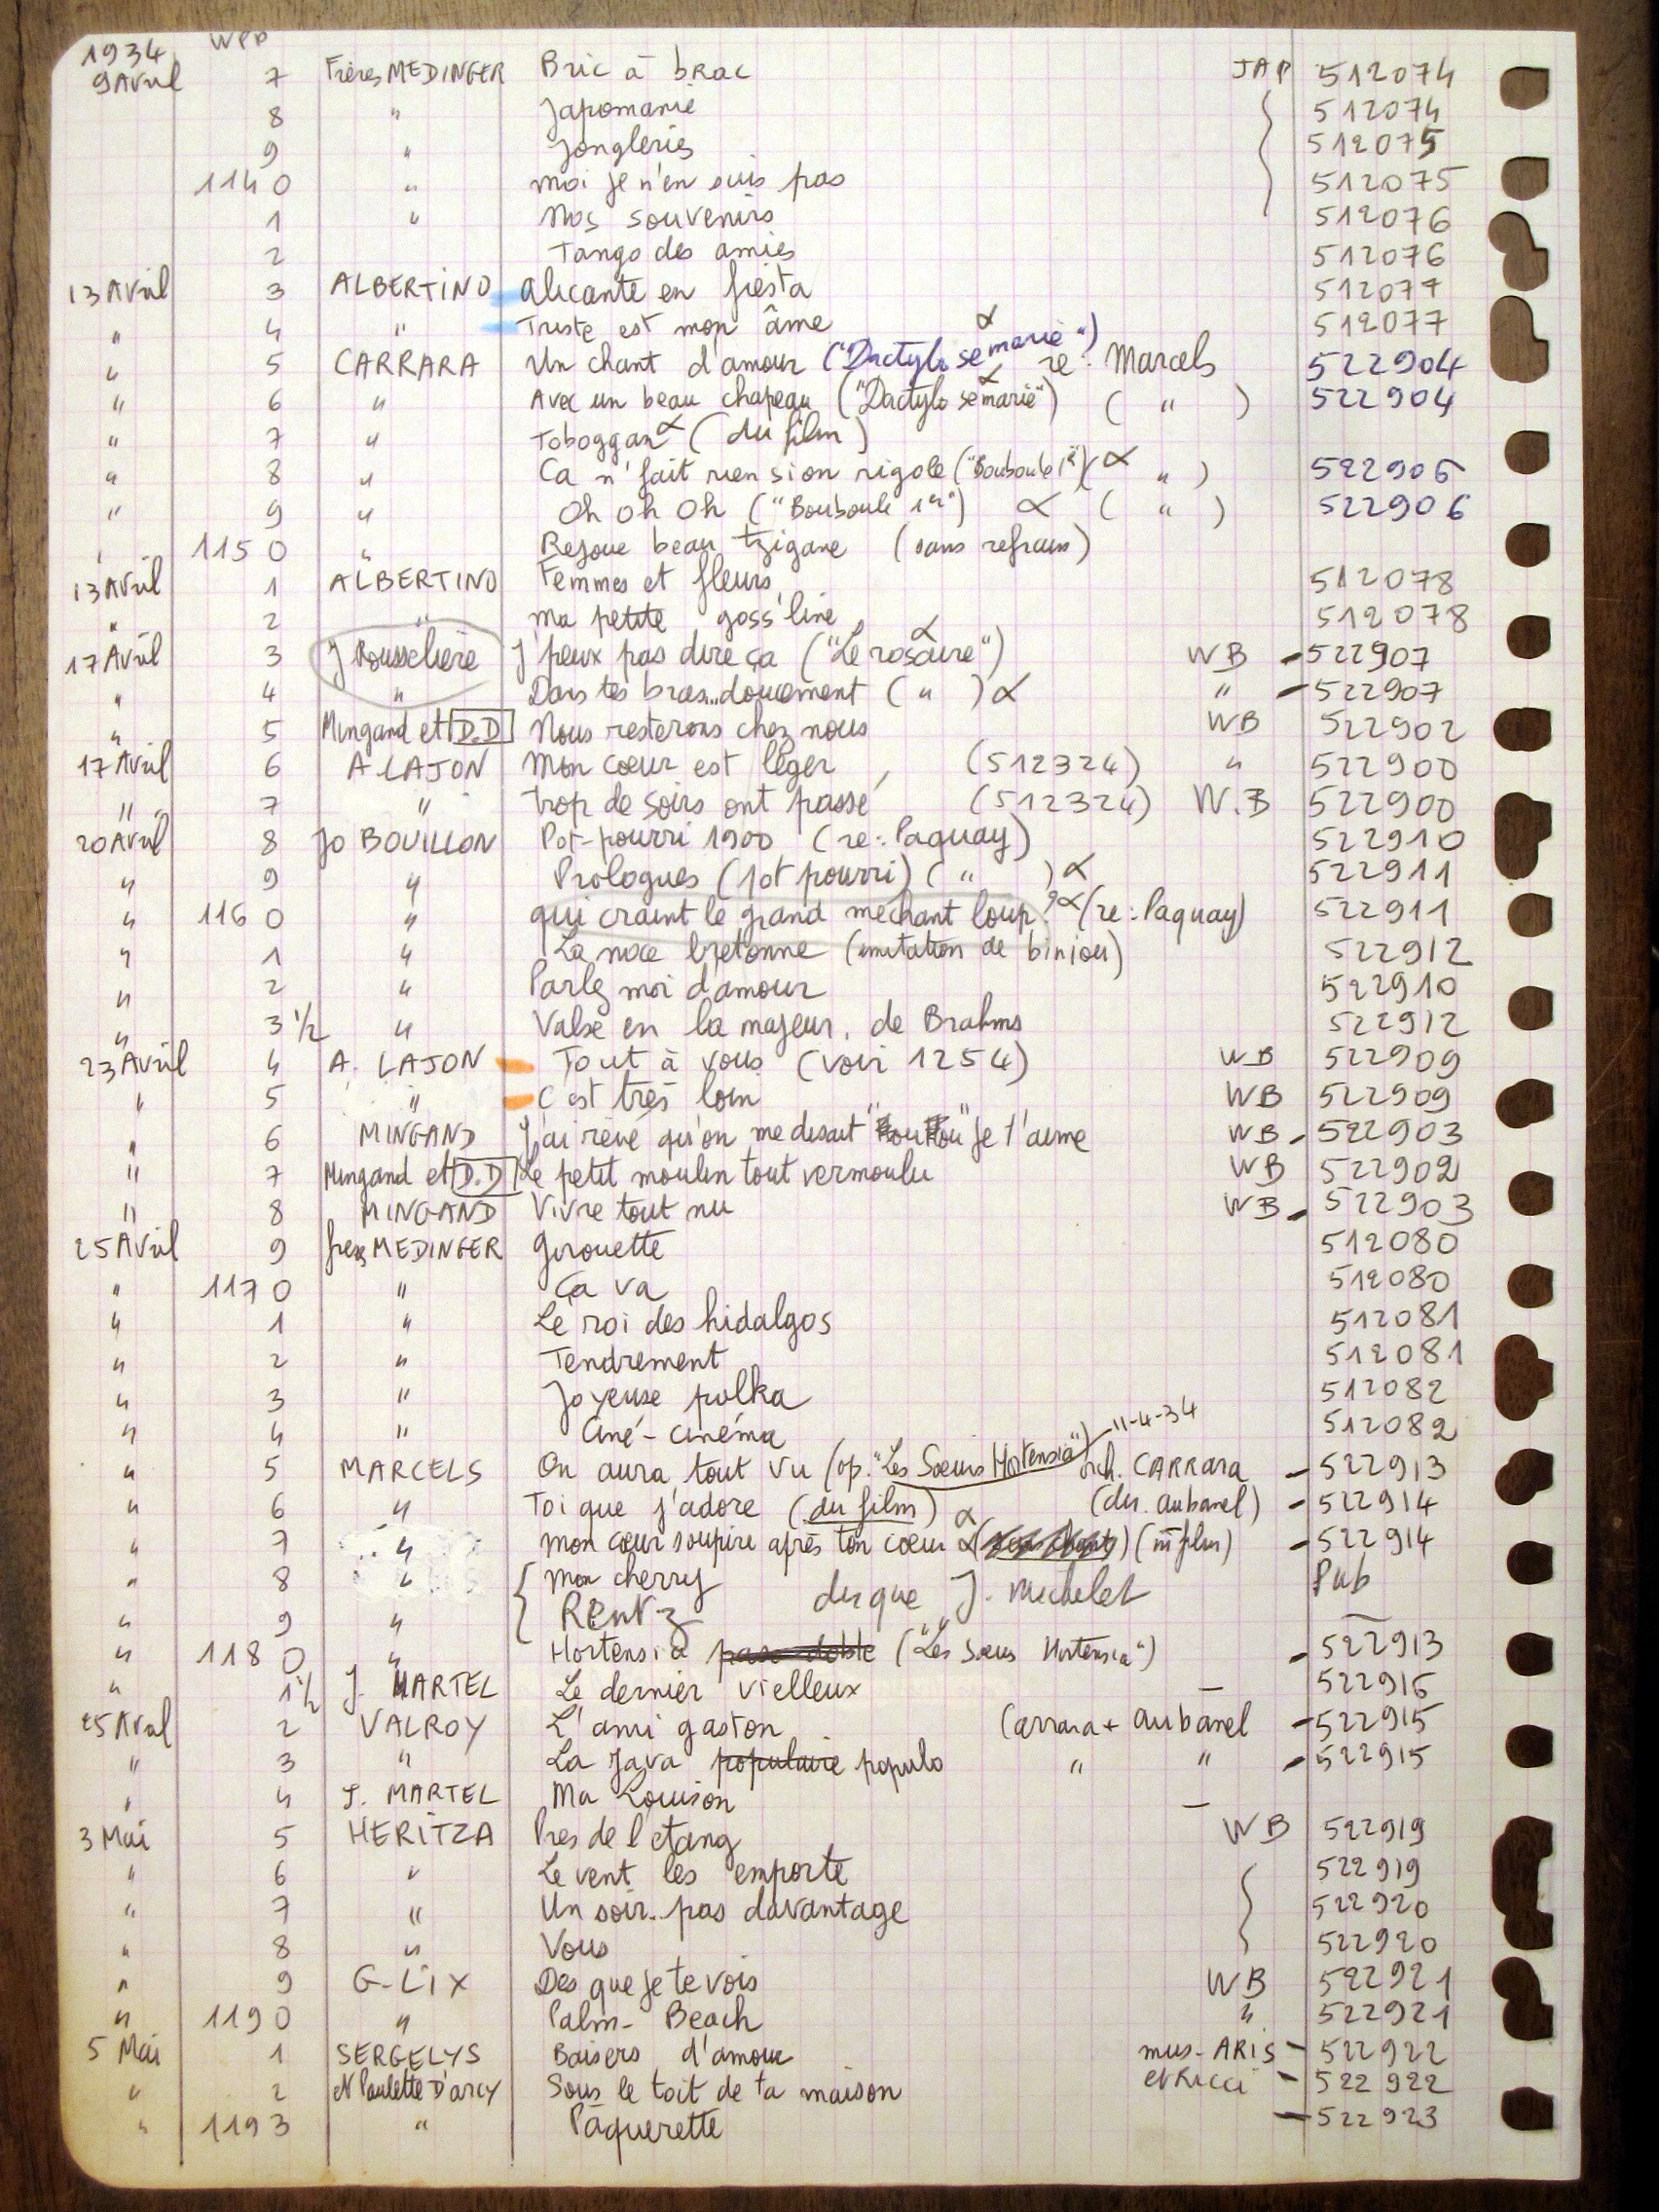 1934 WPP
9 Avril 7 Frères MEDINGER Bric à brac JAP 512074
8 " Japomanie 512074
9 " Jongleries 512075
114 0 " moi je n'en suis pas 512075
1 " Nos souvenirs 512076
2 Tango des amies 512076
13 Avril 3 ALBERTINO Alicante en fiesta 512077
" 4 " Triste est mon âme 512077
" 5 CARRARA Un chant d'amour ("Dactylo se marie") α re: Marcels 522904
" 6 " Avec un beau chapeau ("Dactylo se marie") α ( " ) 522904
" 7 " Toboggan α (du film)
" 8 " Ca n'fait rien si on rigole ("Bouboule 1er") (α " ) 522906
" 9 " Oh Oh Oh ("Bouboule 1er") α ( " ) 522906
115 0 " Rejoue beau tzigane (sans refrain)
13 Avril 1 ALBERTINO Femmes et fleurs 512078
" 2 " ma petite goss'line 512078
17 Avril 3 J Rousselière J'peux pas dire ça ("Le rosaire") α WB - 522907
" 4 " Dans tes bras...doucement ( " ) α " - 522907
" 5 Mingand et D.D Nous resterons chez nous WB 522902
17 Avril 6 A LAJON Mon coeur est léger (512324) " 522900
" 7 " Trop de soirs ont passé (512324) W.B 522900
20 Avril 8 Jo BOUILLON Pot-pourri 1900 (re: Paquay) 522910
" 9 " Prologues (pot pourri) ( " ) α 522911
" 116 0 " qui craint le grand méchant loup? α (re: Paquay) 522911
" 1 " La noce bretonne (imitation de biniou) 522912
" 2 " Parlez moi d'amour 522910
" 3 1/2 " Valse en la majeur, de Brahms 522912
23 Avril 4 A. LAJON Tout à vous (voir 1254) WB 522909
" 5 " C'est très loin WB 522909
" 6 MINGAND J'ai rêvé qu'on me disait " " je t'aime WB - 522903
" 7 Mingand et D.D Le petit moulin tout vermoulu WB 522902
" 8 MINGAND Vivre tout nu WB - 522903
25 Avril 9 frères MEDINGER Girouette 512080
" 117 0 " Ca va 512080
" 1 " Le roi des hidalgos 512081
" 2 " Tendrement 512081
" 3 " Joyeuse polka 512082
" 4 " Ciné-cinéma 512082
" 5 MARCELS On aura tout vu (op. "Les Soeurs Hortensia") 11-4-34 orch. CARRARA - 522913
" 6 " Toi que j'adore (du film) α (dir. Aubanel) - 522914
" 7 " mon coeur soupire après ton coeur α (m̄ film) - 522914
" 8 " mon cherry disque J. Michelet Pub
" 9 " RENTZ
" 118 0 " Hortensia paso doble ("Les Soeurs Hortensia") - 522913
" 1 1/2 J. MARTEL Le dernier vielleux - 522916
25 Avril 2 VALROY L'ami gaston Carrara + Aubanel - 522915
" 3 " La Java populaire populo " " - 522915
" 4 J. MARTEL Ma Louison -
3 Mai 5 HERITZA Pres de l'etang WB 522919
" 6 " Le vent les emporte 522919
" 7 " Un soir.. pas davantage 522920
" 8 " Vous 522920
" 9 G-LIX Des que je te vois WB 522921
" 119 0 " Palm-Beach " 522921
5 Mai 1 SERGELYS Baisers d'amour mus-ARIS - 522922
" 2 et Paulette D'arcy Sous le toit de ta maison et Ricci - 522922
" 119 3 " Pâquerette - 522923